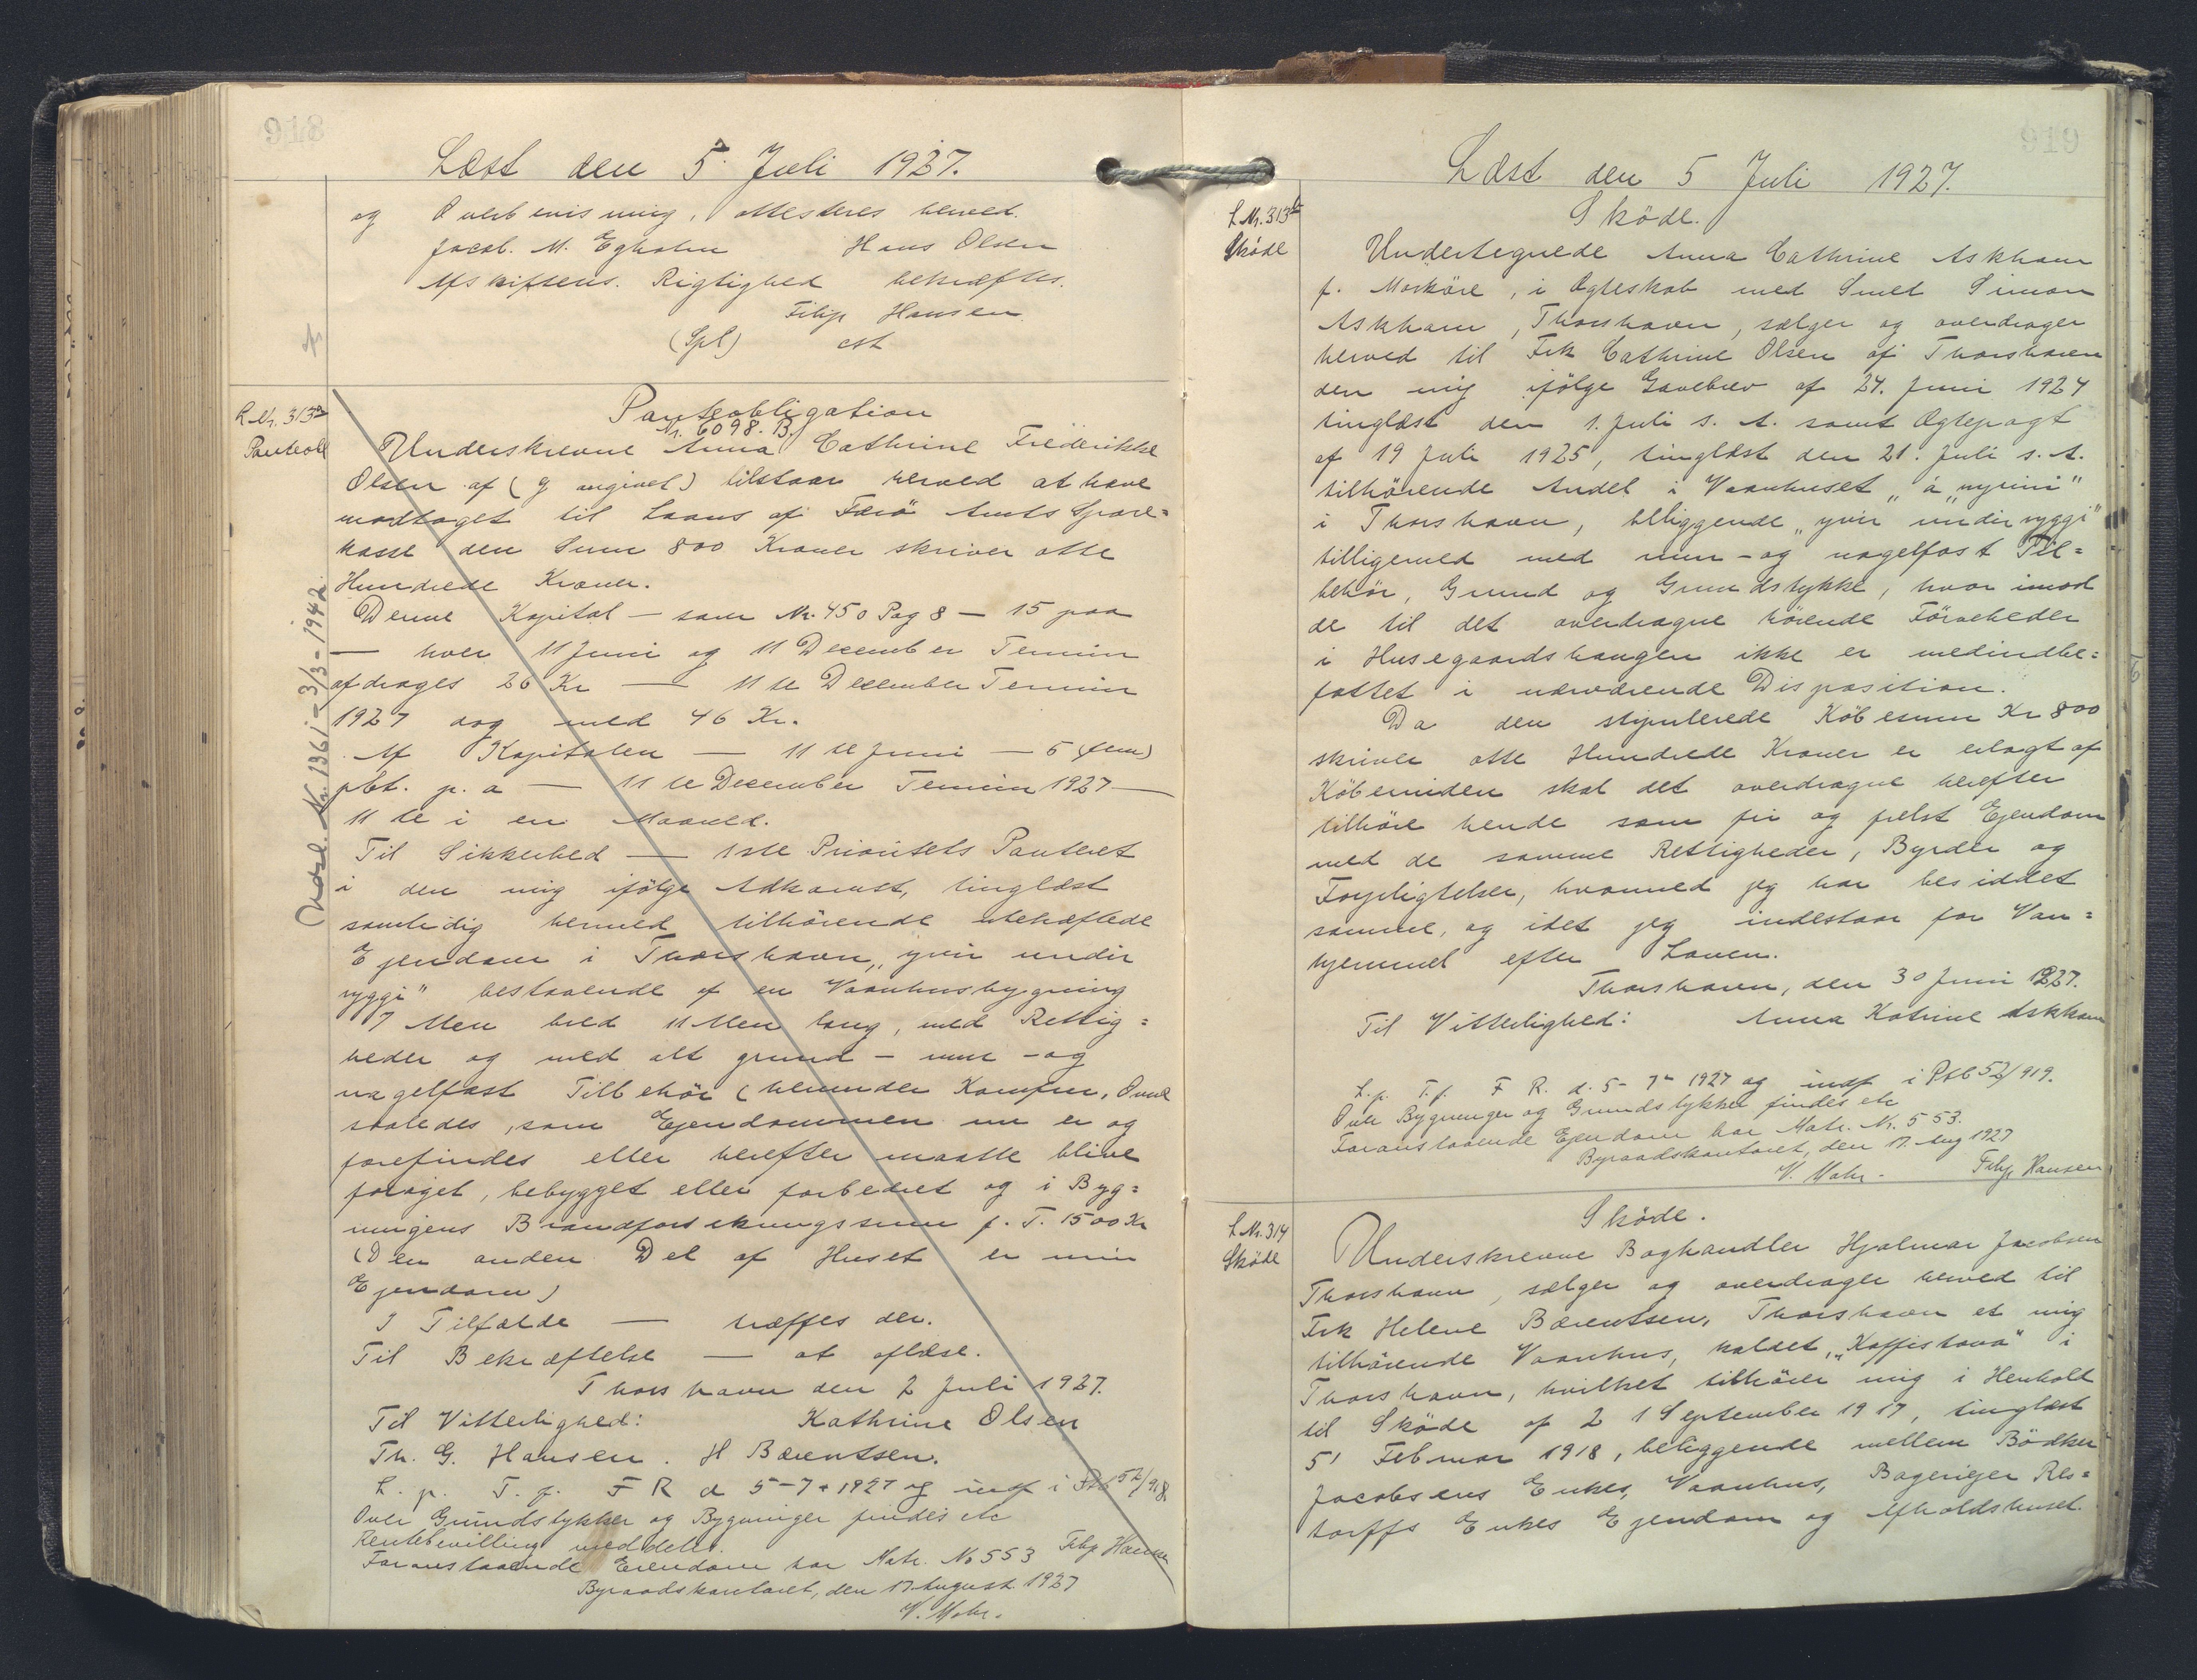 918
Læst den 5. Juli 1927.
og Overbevisning, attesteres herved.
Jacob. M. Egholm Hans Olsen
Afskriftens Rigtighed bekræftes.
Filip Hansen
(Spl) cst
L. Nr. 313a
Panteobl
Panteobligation
Nr. 6098. B.
Underskrevne Anna Cathrine Frederikke
Olsen af (g angivet) tilstaar herved at have
modtaget til Laans af Færö Amts Spare=
kasse den Sum 800 Kroner skriver otte
Hundrede Kroner.
Denne Kapital — som Nr. 450 Pag 8 — 15 paa
— hver 11 Juni og 11 December Termin
afdrages 26 Kr — 11 te December Termin
1927 dog med 46 Kr.
Af Kapitalen — 11 te Juni — 5 (fem)
pCt. p. a — 11 te December Termin 1927 —
11 te i en Maaned.
Til Sikkerhed — 1ste Prioritets Panteret
i den mig ifölge Adkomst, tinglæst
samtidig hermed tilhörende ubehæftede
Ejendom i Thorshavn „yvir undir
ryggi" bestaaende af en Vaanhusbygning
7 Alen bred 11 Alen lang, med Rettig=
heder og med alt grund - mur - og
nagelfast Tilbehör (herunder Komfur, Ovne
saaledes, som Ejendommen nu er og
forefindes eller herefter maatte blive
foröget, bebygget eller forbedret og i Byg=
ningens Brandforsikringssum p. T. 1500 Kr
(Den anden Del af Huset er min
Ejendom)
I Tilfælde — træffes der.
Til Bekræftelse — at aflæse.
Thorshavn den 2 Juli 1927.
Til Vitterlighed: Kathrine Olsen
Th. G. Hansen. H Bærentsen.
L. p. T. f. F R d 5-7-1927 og indf i Ptb 52/918.
Over Grundstykker og Bygninger findes etc
Rentebevilling meddelt. Filip Hansen
Foranstaaende Ejendom har Matr. No 553
Byraadskontoret, den 17 August 1927
V. Mohr.
Udsl. Nr. 1361 - 3/3 - 1942.
919
Læst den 5 Juli 1927.
L Nr. 313b
Sköde
Sköde.
Undertegnede Anna Cathrine Askham
f. Morköre, i Ægteskab med Smed Simon
Askham, Thorshavn, sælger og overdrager
herved til Frk Cathrine Olsen af Thorshavn
den mig ifölge Gavebrev af 24. Juni 1924
tinglæst den 1. Juli s. A. samt Ægtepagt
af 19 Juli 1925, tinglæst den 21. Juli s. A.
tilhörende Andel i Vaanhuset „á nyrini"
i Thorshavn, beliggende „yvir undir ryggi"
tilligemed med mur - og nagelfast Til=
behör, Grund og Grundstykke, hvor imod
de til det overdragne hörende Förneheder
i Husegaardshaugen ikke er medindbe=
fattet i nærværende Disposition.
Da den stipulerede Köbesum Kr 800
skriver otte Hundrede Kroner er erlagt af
Köberinden skal det overdragne herefter
tilhöre hende som fri og frelst Ejendom
med de samme Rettigheder, Byrder og
Forpligtelser, hvormed jeg har besiddet
samme, og idet jeg indestaar for Van=
hjemmel efter Loven.
Thorshavn, den 30 Juni 1927.
Til Vitterlighed: Anna Katrine Askham
L. p. T. f. F R. d. 5-7-1927 og indf i Ptb 52/919.
Over Bygninger og Grundstykker findes etc
Foranstaaende Ejendom har Matr. Nr. 553.
Byraadskontoret, den 17. Aug 1927
V. Mohr. Filip Hansen
L Nr. 314
Sköde
Sköde.
Underskrevne Boghandler Hjalmar Jacobsen
Thorshavn, sælger og overdrager herved til
Frk Helene Bærentsen, Thorshavn et mig
tilhörende Vaanhus, kaldet, „Kaffistova" i
Thorshavn, hvilket tilhörer mig i Henhold
til Sköde af 21 September 1917, tinglæst
5' Februar 1918, beliggende mellem Bödker
Jacobsens Enkes, Vaanhus, Bageriejer Res=
torffs Enkes Ejendom og Afholdshuset.